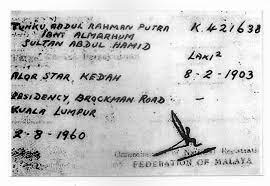 TUNKU ABDUL RAHMAN PUTRA K.421638
IBNI ALMARHUM
SULTAN ABDUL HAMID LAKI²
ALOR STAR, KEDAH 8-2-1903
RESIDENCY, BROCKMAN ROAD —
KUALA LUMPUR
2-8-1960
National Registration
FEDERATION OF MALAYA